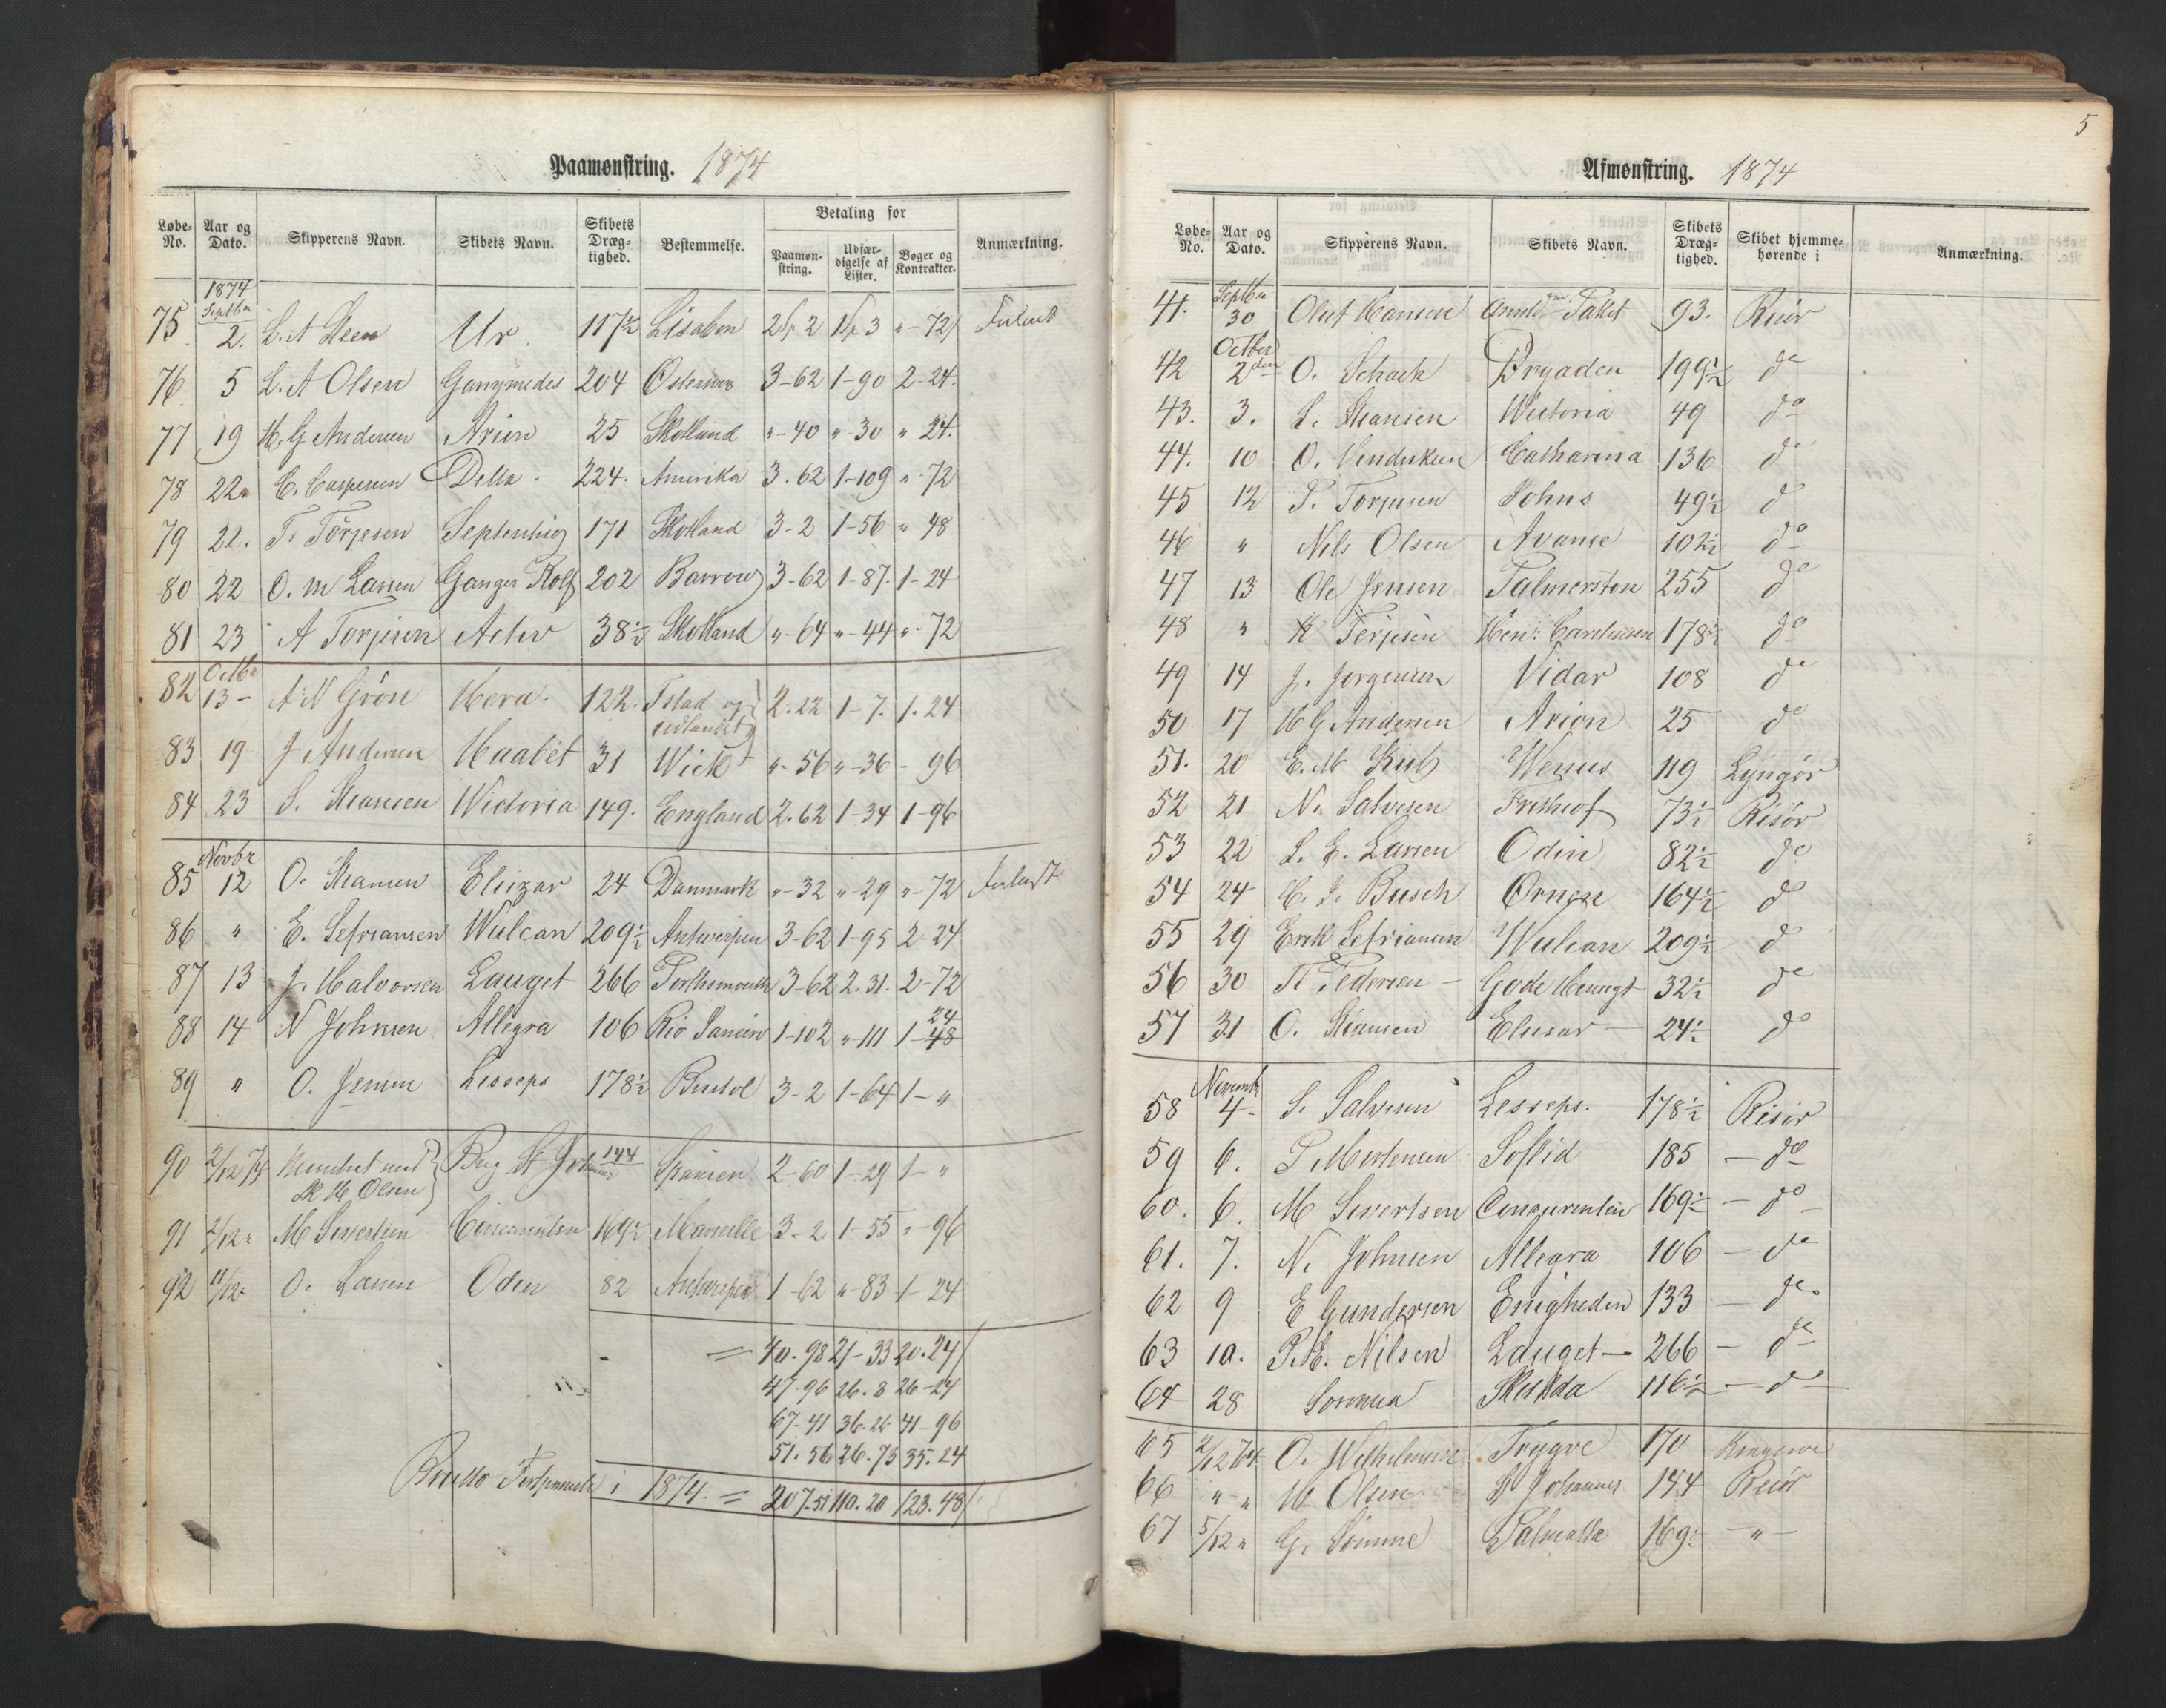 Paamønstring. 1874
Løbe-No. | Aar og Dato. | Skipperens Navn. | Skibets Navn. | Skibets Dræg-tighed. | Bestemmelse. | Betaling for | Paamøn-string. | Udfær-digelse af Lister. | Bøger og Kontrakter. | Anmærkning.
1874
Septbr
75 2. L. A Steen Ur 117½ Lisabon 2 2 1 3 "-72
76 5 L. A Olsen Ganymedes 204 3-62 1-90 2-24.
77 19 H. G Andersen Arion 25 Skotland "-40 "-30 " 24.
78 22 C. Caspersen Delta. 224. Amerika 3.62 1-109 "-72
79 22. T. Törjesen 171 Skotland 3-2 1-56 " 48
80 22 O. M Larsen Ganger Rolf 202 Barrow 3-62 1-87. 1-24
81 23 A Torjesen Activ 38½ Skotland "-64 "-44 "-72
Octbr
82 13- A. N Grön Hera. 122. 2.22 1-7. 1.24
83 19 J Andersen Haabet 31 Wick "-56 "-36 - 96
84 23 S. Hansen Wictoria 149. England 2.62 1-34 1-96
Novbr
85 12 O. Hansen Eliezar 24 Danmark "-32 "-29 "-72
86 " E. Sefriansen Wulcan 209½ Antwerpen 3-62 1-95 2-24
87 13 J. Halvorsen Lauget 266 Porthsmouth 3-62 2.31. 2-72
24
88 14 N Johnsen Allegra 106 Rio Janeiro 1-102 "-111 1-48
89 " O. Jensen Lesseps 178½ Bristol 3-2 1-64 1-"
90 2/12 74 Brig St Johannes 144 Spanien 2-60 1-29 1-"
H. Olsen
91 2/12 " M Sivertsen Concurenten 169½ Marseille 3-2 1-55 "-96
92 11/12 O. Larsen Oden 82 Antwerpen 1-62 "-83 1-24
= 40.98 21-33 20.24
47-96 26.8 26-24
67-41 36.26 41-96
51.56 26.73 35.24
Brutto i 1874 = 207.51 110.20 123.48
5
Afmønstring. 1874
Løbe-No. | Aar og Dato. | Skipperens Navn. | Skibets Navn. | Skibets Dræg-tighed. | Skibet hjemme-hørende i | Anmærkning.
Septbr
41. 30 Oluf Hansen 93. Risör
Octber
42 2den O. Schack Dryaden 199½ do
43. 3. S. Hansen Wictoria 49 do
44. 10 O. Hendriksen Catharina 136 do
45 12 T. Torjesen Johns 49½ do
46 " Nils Olsen Avance 102½ do
47 13 Ole Jensen Palmerston 255 do
48 " K Terjesen 178½ do
49 14 J. Jorgensen Vidar 108 do
50 17 H G Andersen Arion 25 do
51. 20 E. M Wenus 119 Lyngör
52 21 N. Salvesen Frithiof 73½ Risör
53 22 L. E. Larsen Odin 82½ do
54 24 H. J. Busch Ornen 164½ do
55 29 Erik Sefriansen Wulcan 209½ do
56 30 P. Pedersen - Gode Hensigt 32½ do
57 31 O. Hansen Eliesar - 24½ do
Novembr
58 4- S. Salvesen Lesseps. 178½ Risör
59 6. P Mortensen Solflid 185 - do
60. 6. M Sivertsen Concurenten 169½ - do
61. 7. N. Johnsen Allegra 106 - do
62 9 E Gundersen Enigheden 133 - do
63 10. P. E. Nilsen Lauget - 266 - do
64 28 Skulda 116½ - do
65 2/12 74 O. Wilhelmsen Trygve 170
66 " " H Olsen St Johannes 144 Risör
67 5/12 " G. 169½ - " -